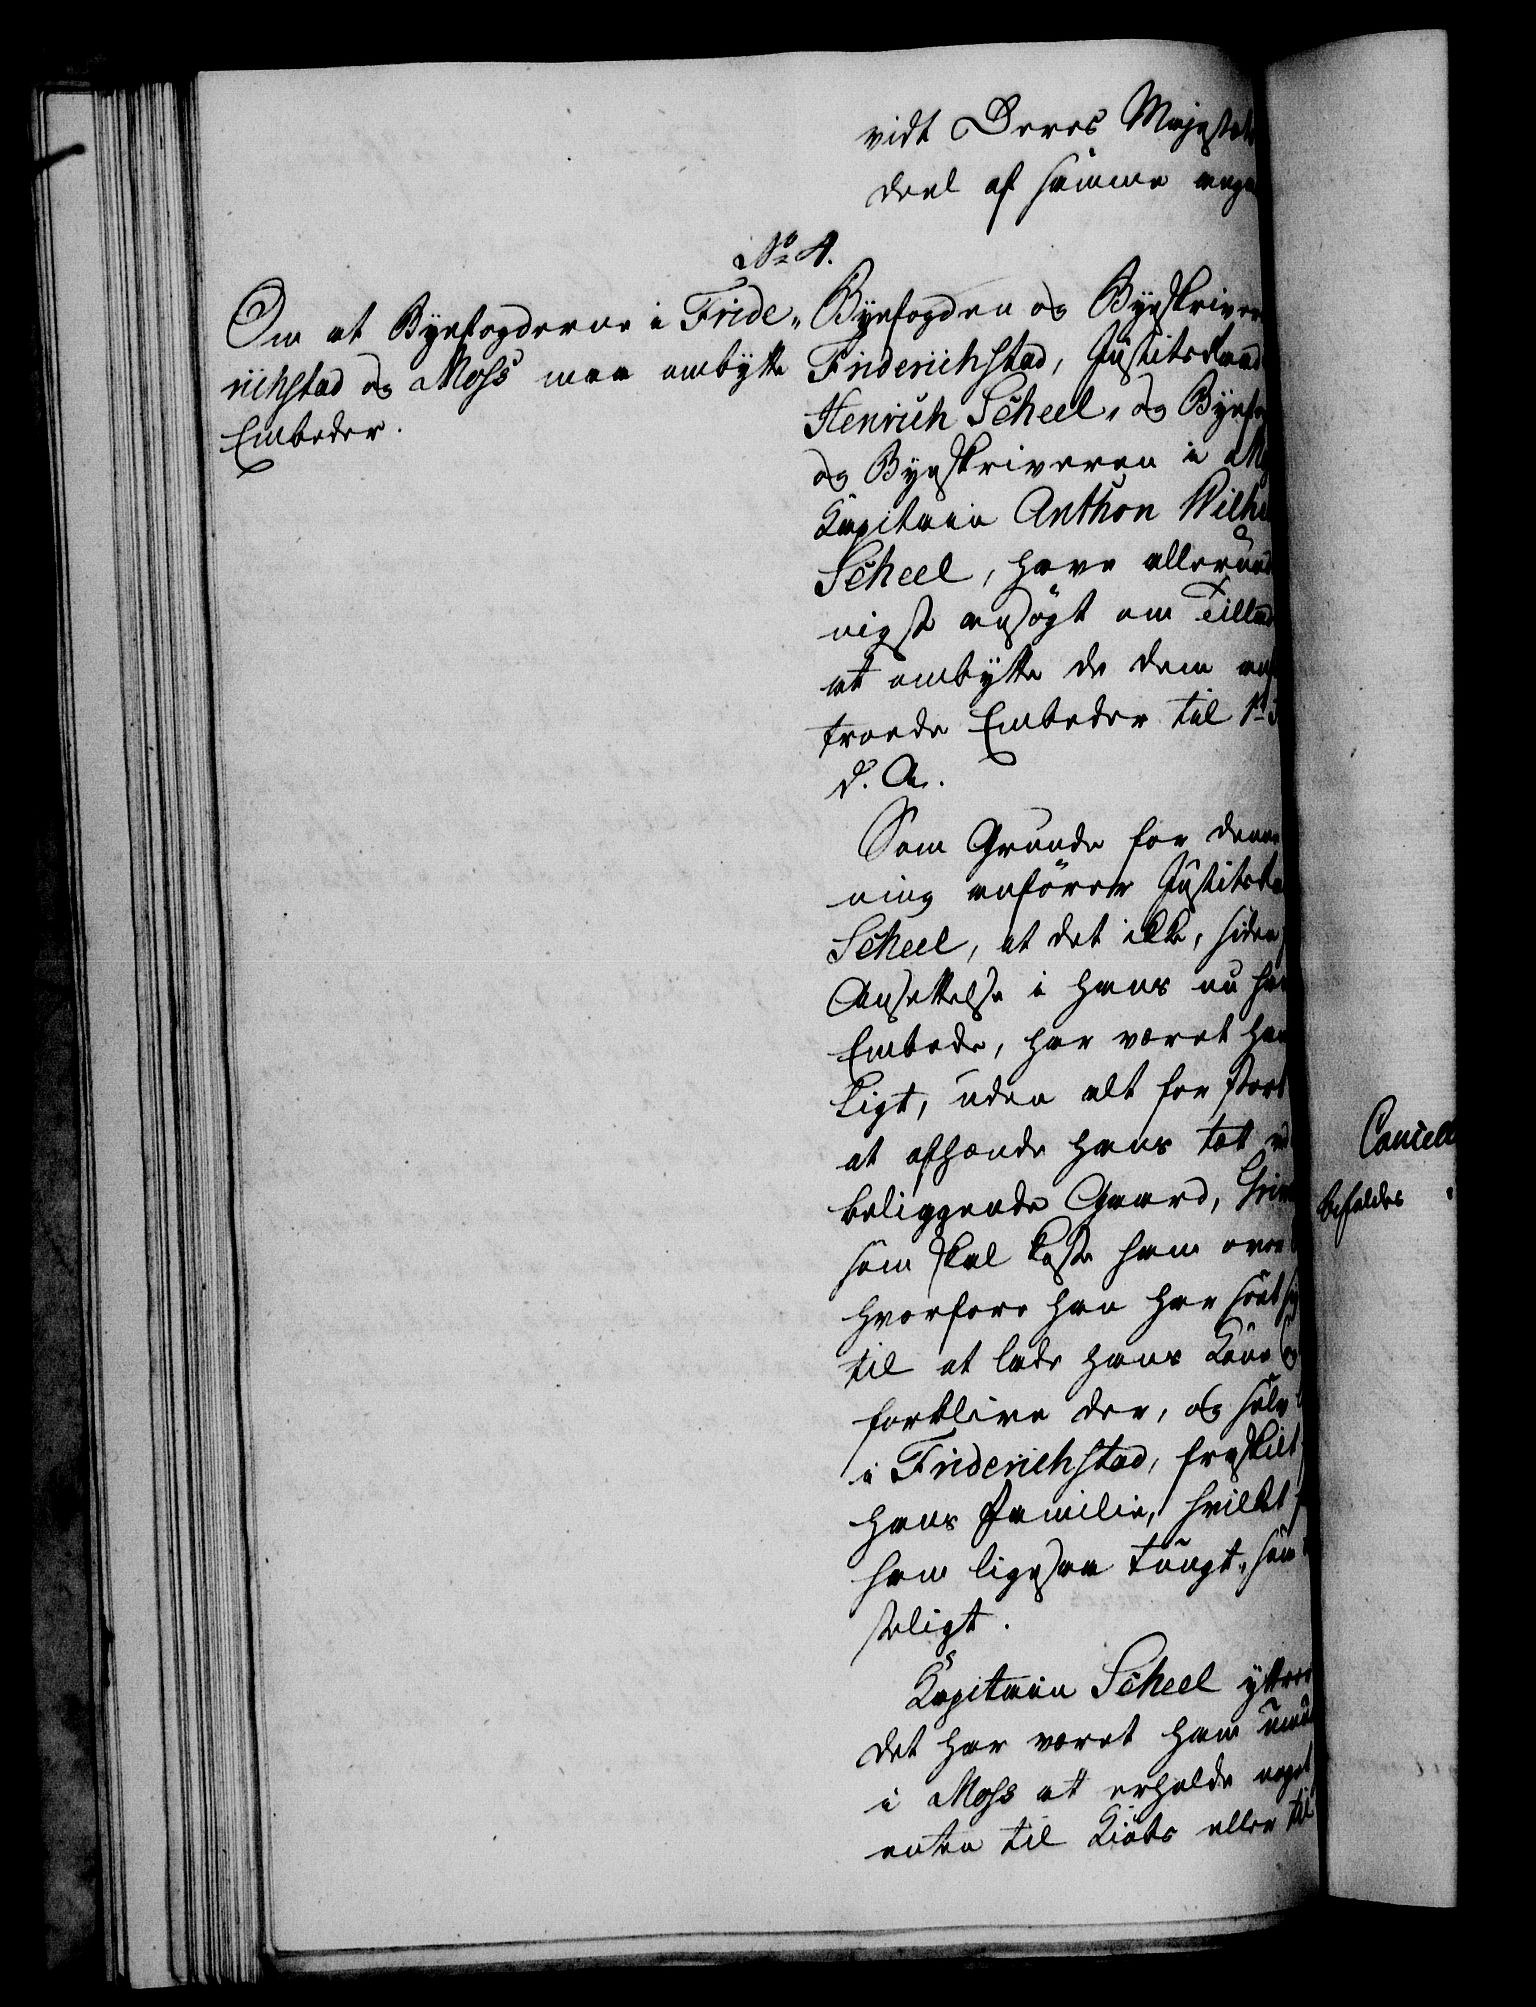 vidt Deres Majestæt
deel af samme
No 4.
Om at Byefogderne i Fride-
richstad og Moss maa ombytte
Embeder.
Byefogden og Byeskriver
Friderichstad, Justitsraad
Henrich Scheel, og Byefo
og Byeskriveren i Mo
Kapitain Anthon Wilhe
Scheel, have allerund
nigst ansøgt om Tillad
at ombytte de dem an
troede Embeder til
d. A.
Som Grunde for denne
ning anfører Justitsra
Scheel, at det ikke, siden
Ansettelse i hans nu ha
Embede, har været ham
ligt, uden alt for stort
at afhænde hans tæt ved
beliggende Gaard,
som skal koste ham over
hvorfore han har seet sig
til at lade hans Kone og
forblive der, og selv
i Friderichstad, fraskilt
hans Familie, hvilket
ham ligesaa tungt, som
steligt.
Kapitain Scheel yttrer
det har været ham umu
i Moss at erholde noget
enten til Kiøbs eller til
Cancell
befales